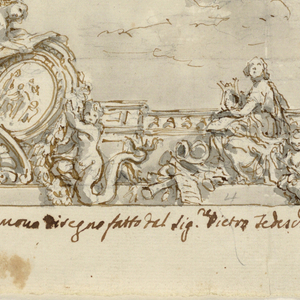 4
mono disegno fatto dal Sig.re Pietro Tedesc